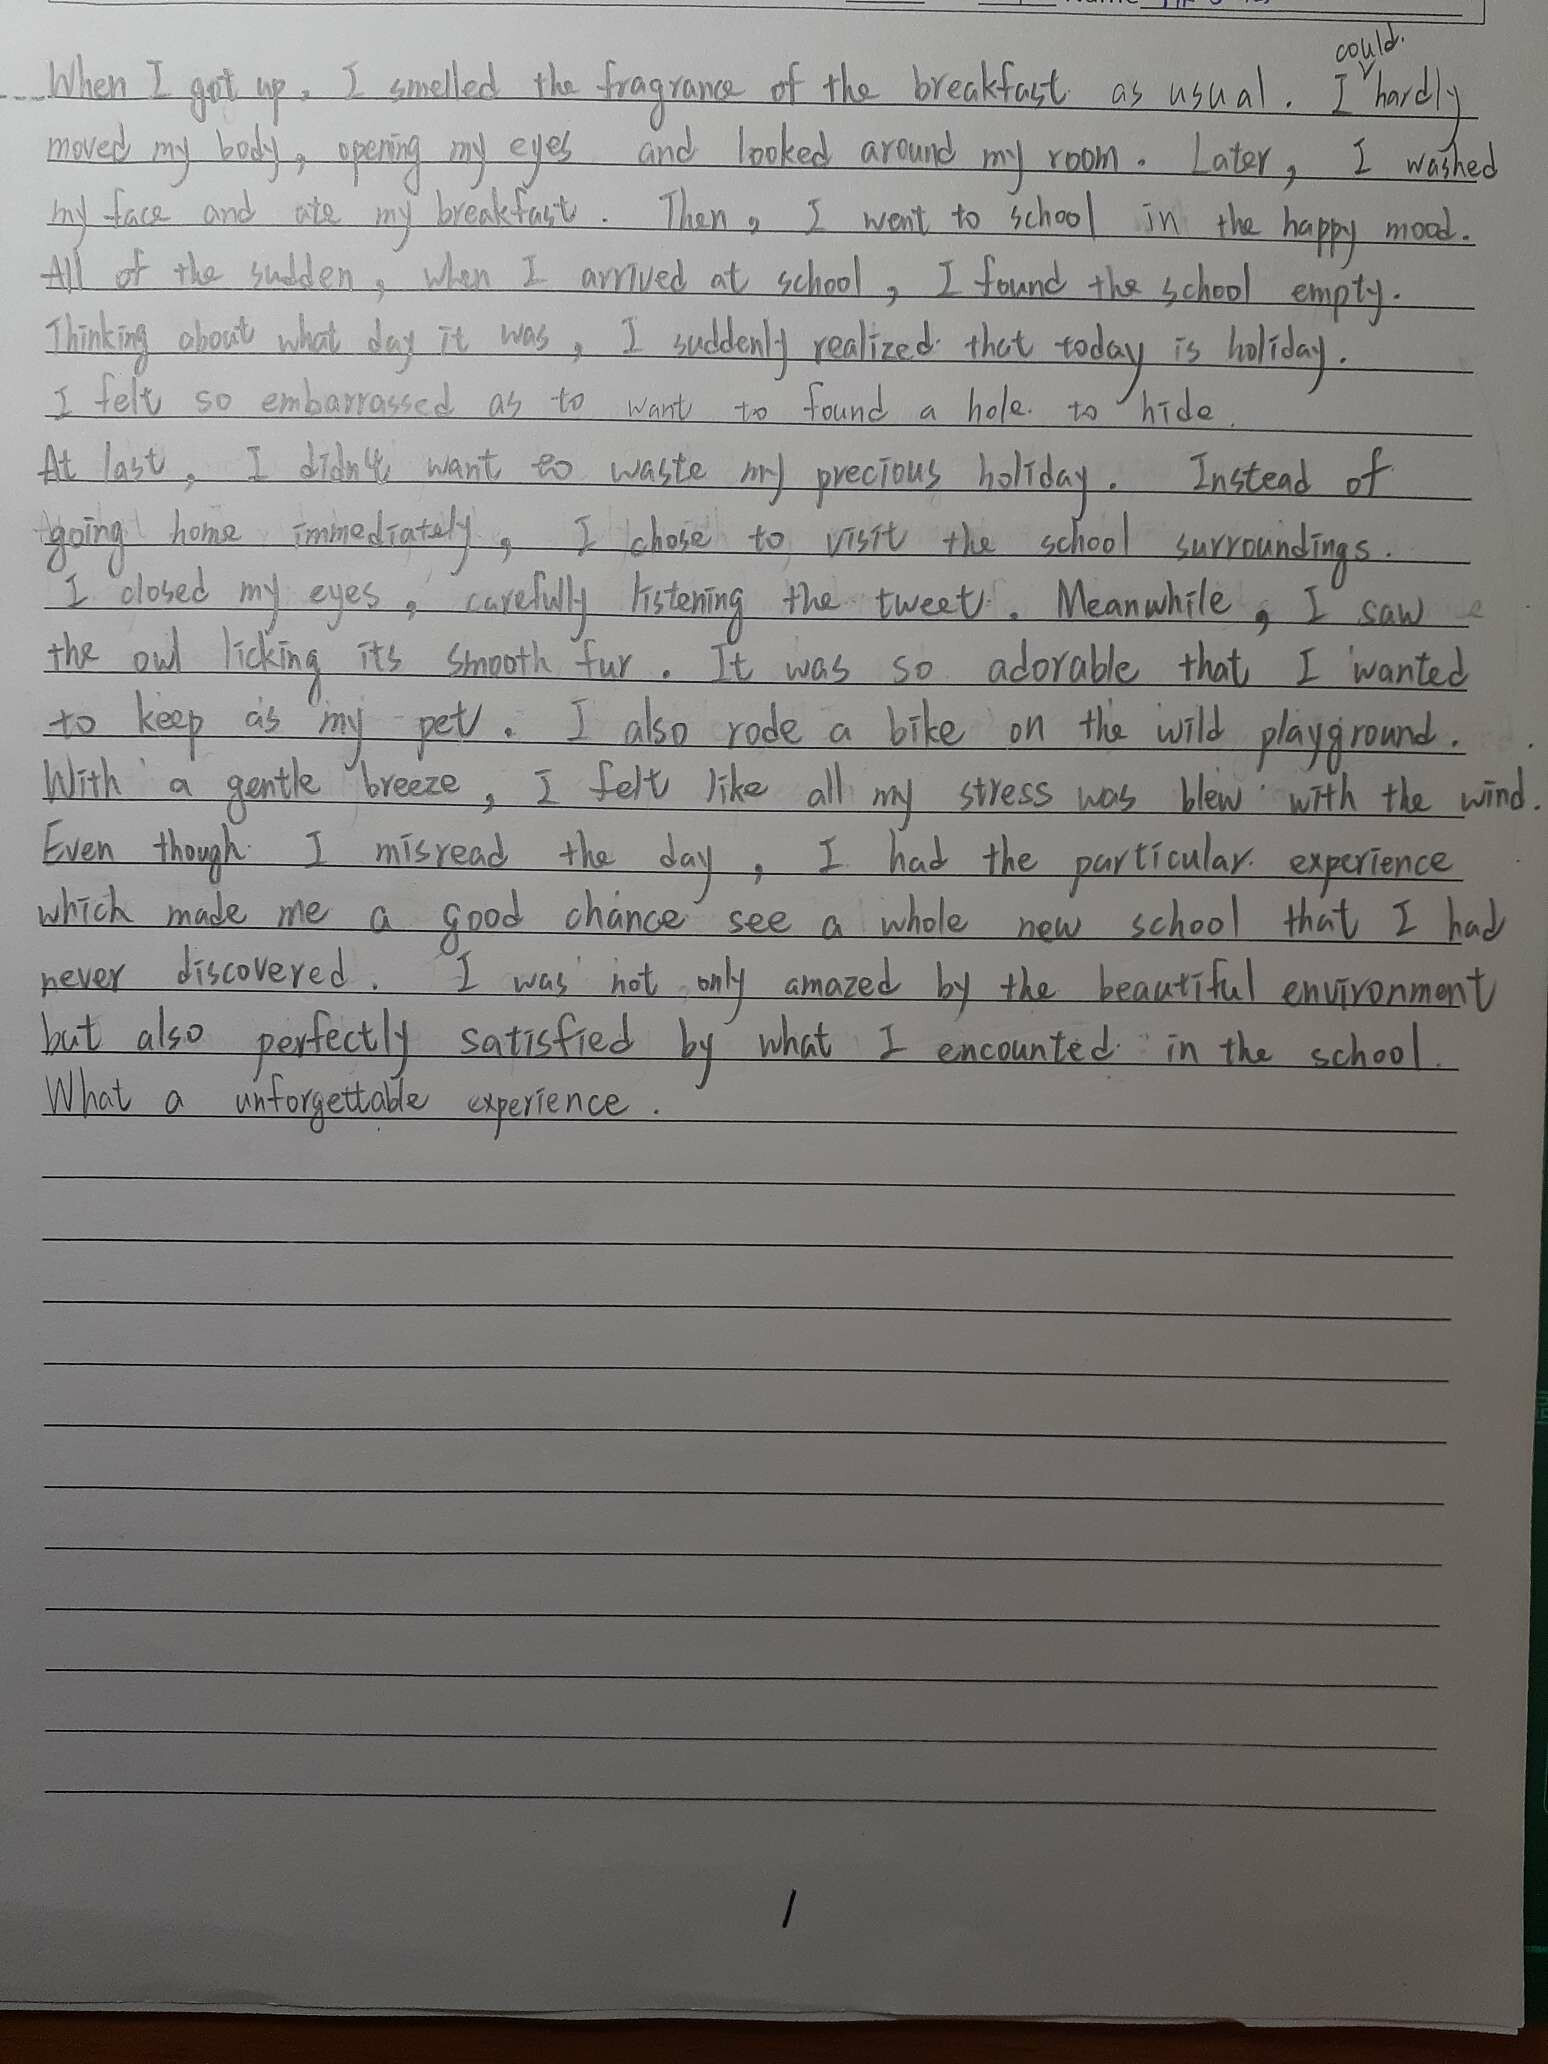 Name
could.
When I got up, I smelled the fragrance of the breakfast as usual. I hardly
moved my body, opening my eyes and looked around my room. Later, I washed
my face and ate my breakfast. Then, I went to school in the happy mood.
All of the sudden, when I arrived at school, I found the school empty.
Thinking about what day it was, I suddenly realized that today is holiday.
I felt so embarrassed as to want to found a hole to hide.
At last, I didn't want to waste my precious holiday. Instead of
going home immediately, I chose to visit the school surroundings.
I closed my eyes, carefully listening the tweet. Meanwhile, I saw
the owl licking its smooth fur. It was so adorable that I wanted
to keep as my pet. I also rode a bike on the wild playground.
With a gentle breeze, I felt like all my stress was blew with the wind.
Even though I misread the day, I had the particular experience
which made me a good chance see a whole new school that I had
never discovered. I was not only amazed by the beautiful environment
but also perfectly satisfied by what I encounted in the school.
What a unforgettable experience.
1